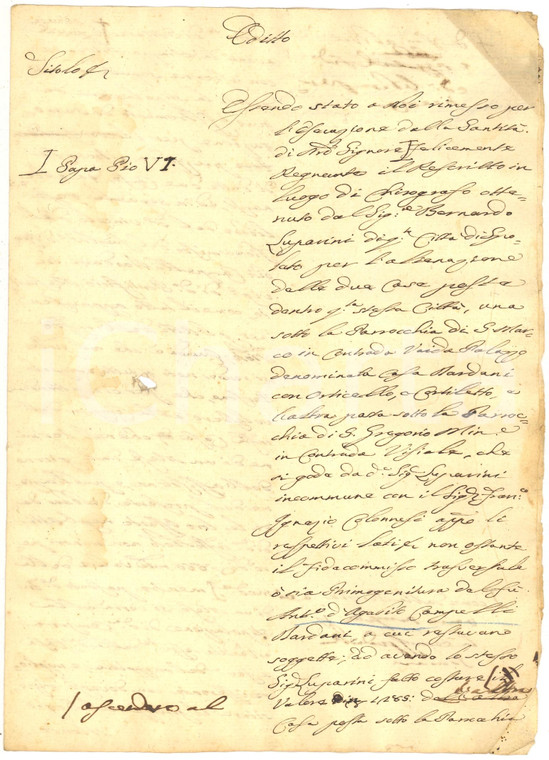 Editto
Titolo
Essendo stato a Noi rimesso per
l'esecuzione dalla Santità
di Nro Signore I felicemente
I Papa Pio VI.
Regnante il Rescritto in
luogo di Chirografo otte-
nuto dal Sigr Bernardo
Luparini di qta Città di Spo-
leto per l'alienazione
delle due Case poste
dentro qta stessa Città, una
sotto la Parrocchia di S. Mar-
co in Contrada
denominata Casa Mardani
con Orticello, e Cortiletto, e
l'altra posta sotto la Parroc-
chia di S. Gregorio Min.e
in Contrada Visiale, che
si gode da do Sigr Luparini
incommune con il Sigr Franco
Ignazio Colonnesi appo li
respettivi lati non ostante
il fidecommisso trasversale
o sia Primogenitura del fu
Anto d'Agabiti Campelli
Mardani a cui restavano
soggette; ed avendo lo stesso
Sigr Luparini fatto costare il
/ ascendere al
Valore 1285:
Casa posta sotto la Parrocchia
iChar